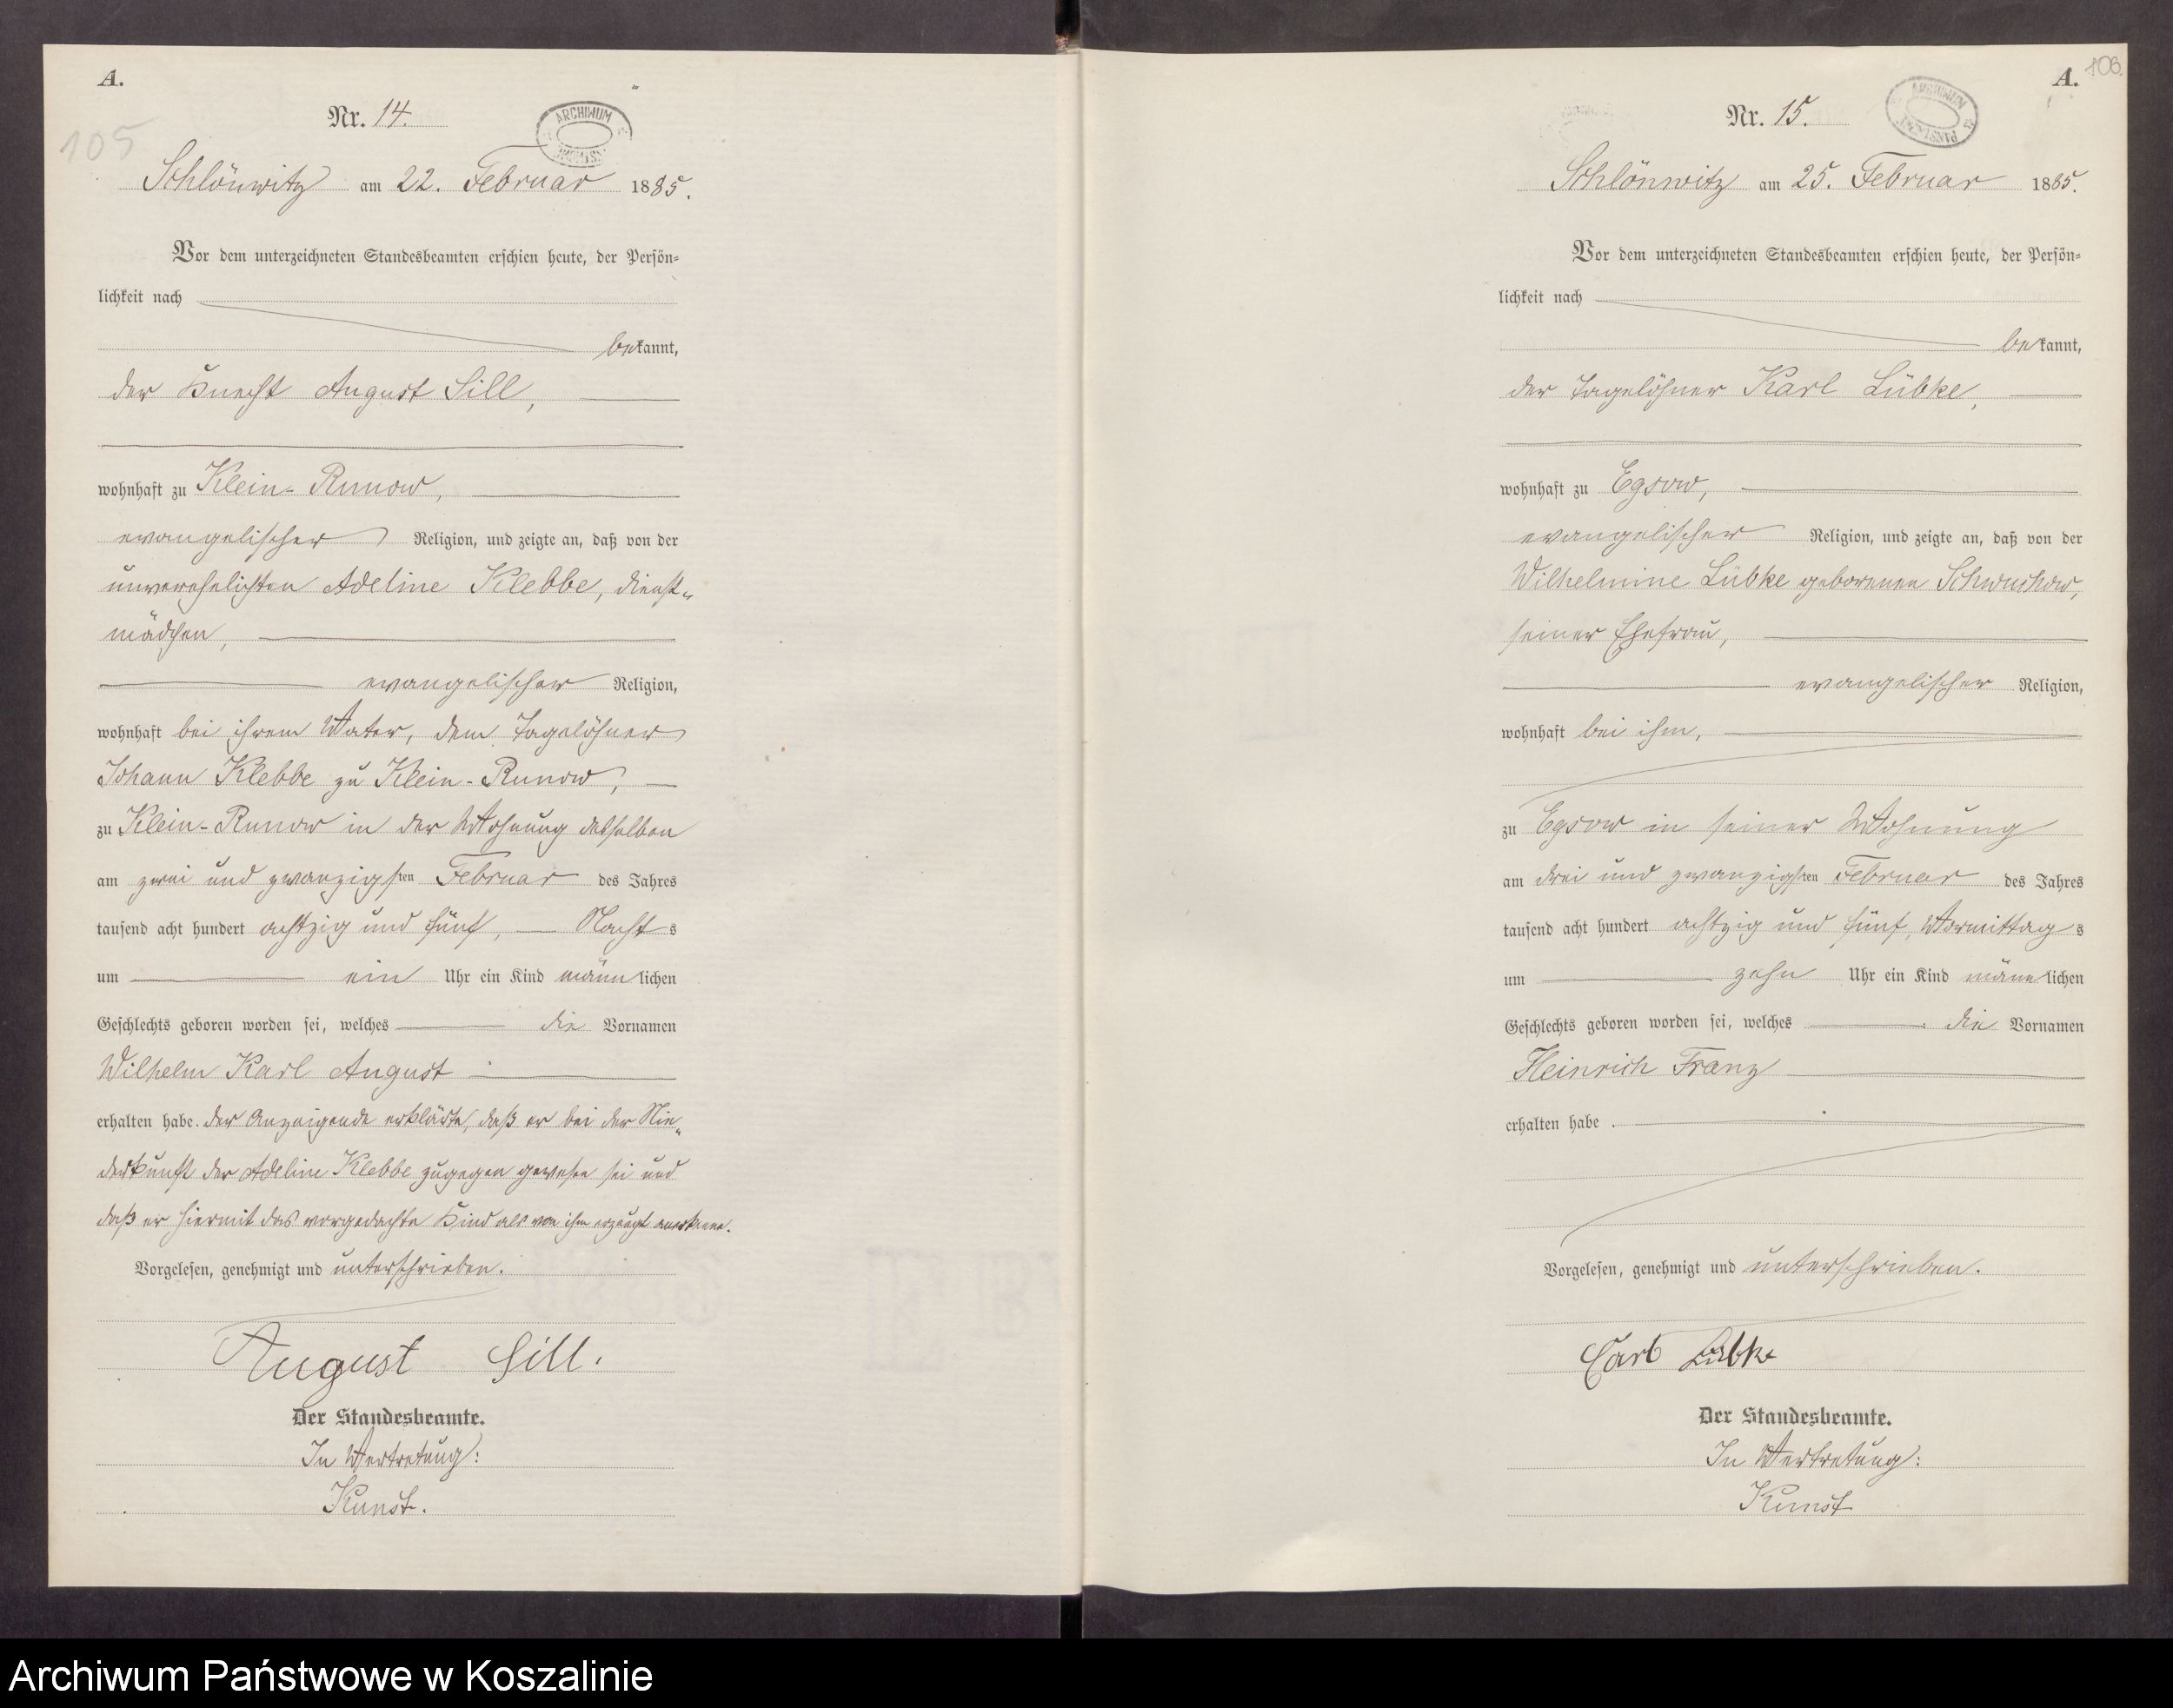 A.
Nr. 14.
105
ARCHIWUM
Schlönwitz am 22. Februar 1885.
Vor dem unterzeichneten Standesbeamten erschien heute, der Persön-
lichkeit nach
bekannt,
der Knecht August Sill,
wohnhaft zu Klein-Runow,
evangelischer Religion, und zeigte an, daß von der
unverehelichten Adeline Klebbe, Dienst-
mädchen,
evangelischer Religion,
wohnhaft bei ihrem Vater, dem Tagelöhner
Johann Klebbe zu Klein-Runow,
zu Klein-Runow in der Wohnung desselben
am zwei und zwanzigsten Februar des Jahres
tausend acht hundert achtzig und fünf, Nachts
um ein Uhr ein Kind männlichen
Geschlechts geboren worden sei, welches die Vornamen
Wilhelm Karl August
erhalten habe. Der Anzeigende erklärte, daß er bei der Nie-
derkunft der Adeline Klebbe zugegen gewesen sei und
daß er hiermit das vorgedachte Kind als von ihm erzeugt anerkenne.
Vorgelesen, genehmigt und unterschrieben.
August Sill.
Der Standesbeamte.
In Vertretung:
Kunst.
A.
106.
Nr. 15.
Schlönwitz am 25. Februar 1885.
Vor dem unterzeichneten Standesbeamten erschien heute, der Persön-
lichkeit nach
bekannt,
der Tagelöhner Karl Lübke,
wohnhaft zu Egsow,
evangelischer Religion, und zeigte an, daß von der
Wilhelmine Lübke geborenen Schwuchow,
seiner Ehefrau,
evangelischer Religion,
wohnhaft bei ihm,
zu Egsow in seiner Wohnung
am drei und zwanzigsten Februar des Jahres
tausend acht hundert achtzig und fünf, Vormittags
um zehn Uhr ein Kind männlichen
Geschlechts geboren worden sei, welches die Vornamen
Heinrich Franz
erhalten habe.
Vorgelesen, genehmigt und unterschrieben.
Carl Lübke
Der Standesbeamte.
In Vertretung:
Kunst
Archiwum Państwowe w Koszalinie